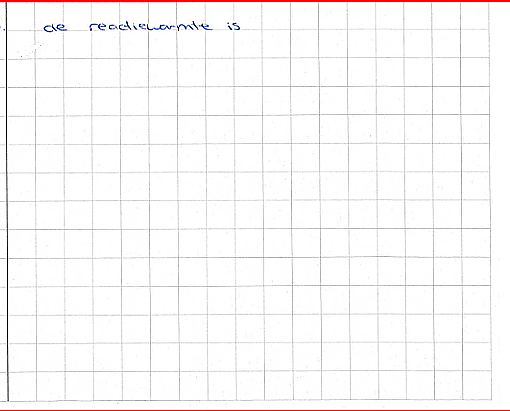 de reactiewarmte is